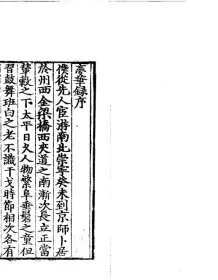 夢華録序
僕從先人宦游南北崇寧癸未到京師卜居
於州西金梁橋西夾道之南漸次長立正當
輦轂之下太平日久人物繁阜垂髫之童但
習鼓舞班白之老不識干戈時節相次各有